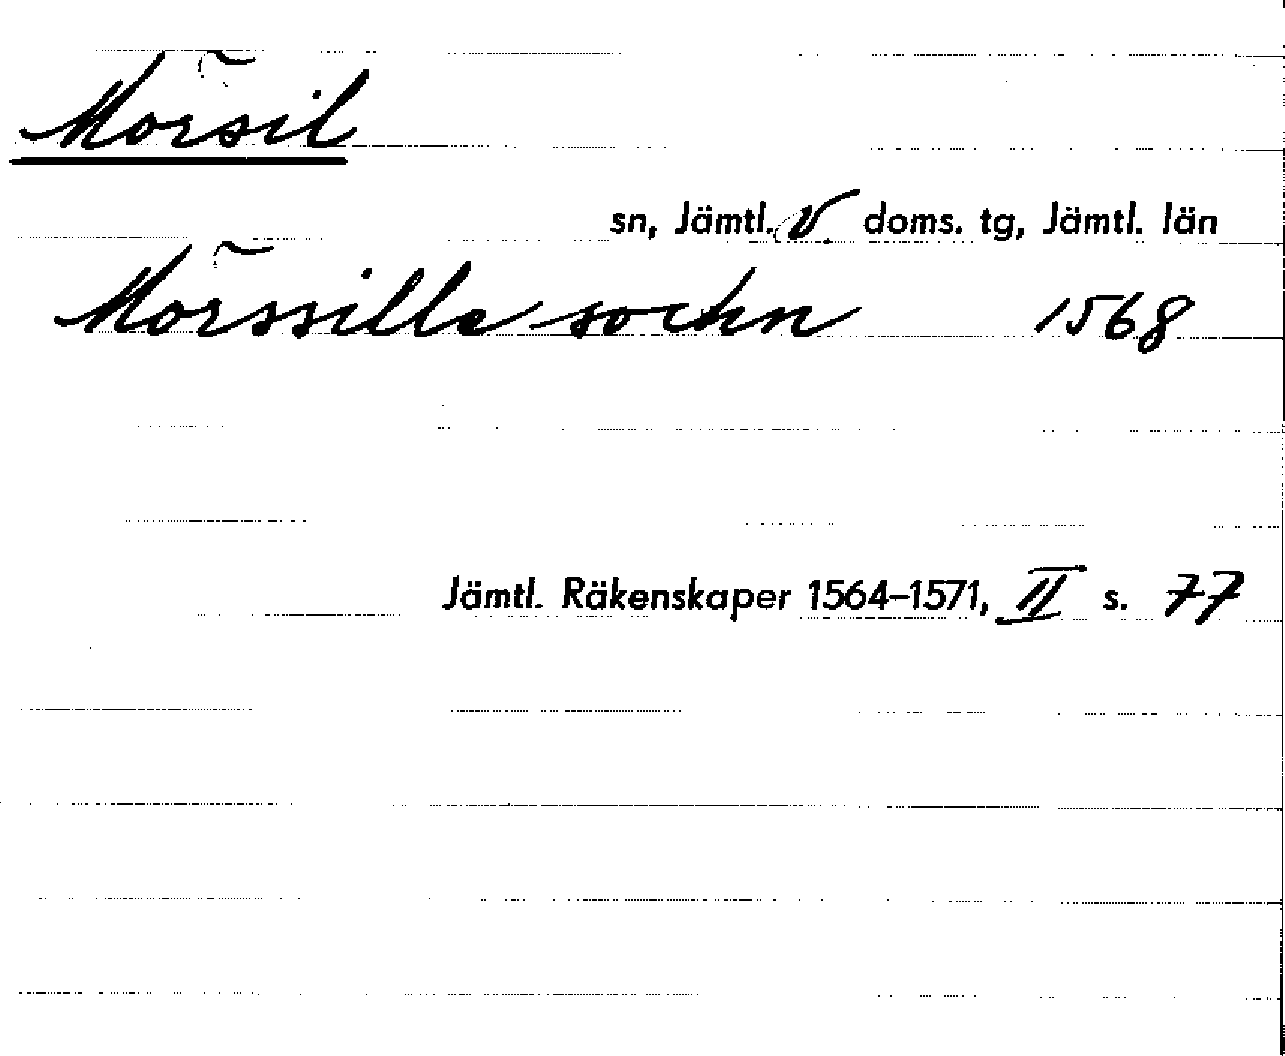 Mörsil
sn, Jämtl. V doms. tg, Jämtl. län
Mörssille sochn 1568
Jämtl. Räkenskaper 1564-1571, II s. 77